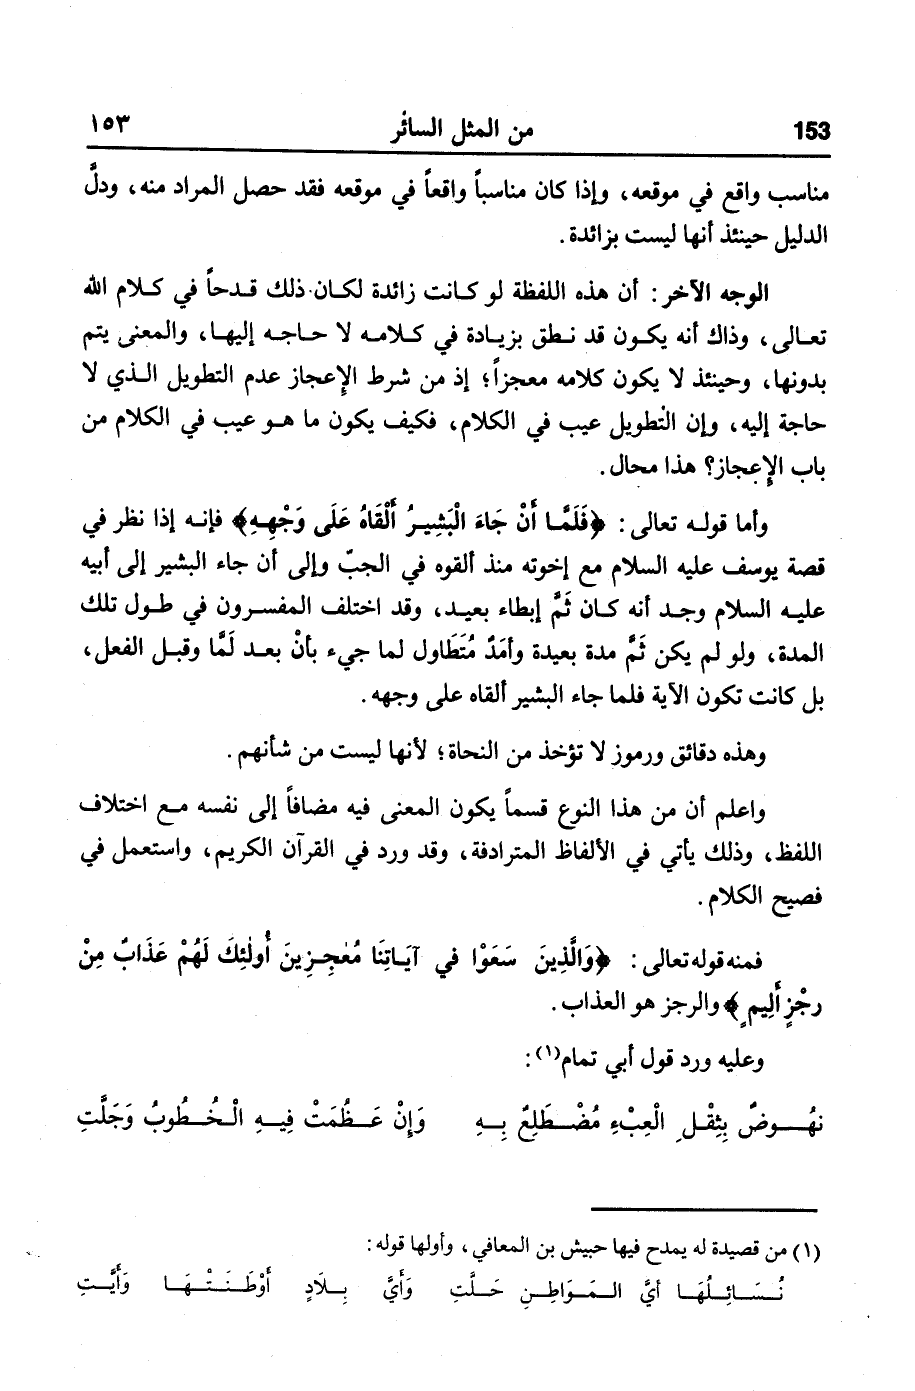 153 من المثل السائر ١٥٣
مناسب واقع في موقعه، وإذا كان مناسباً واقعاً في موقعه فقد حصل المراد منه، ودلَّ
الدليل حينئذ أنها ليست بزائدة.
الوجه الآخر: أن هذه اللفظة لو كانت زائدة لكان ذلك قدحاً في كلام الله
تعالى، وذاك أنه يكون قد نطق بزيادة في كلامه لا حاجه إليها، والمعنى يتم
بدونها، وحينئذ لا يكون كلامه معجزاً؛ إذ من شرط الإعجاز عدم التطويل الذي لا
حاجة إليه، وإن التطويل عيب في الكلام، فكيف يكون ما هو عيب في الكلام من
باب الإعجاز؟ هذا محال.
وأما قوله تعالى: ﴿فَلَمَّا أَنْ جَاءَ الْبَشِيرُ أَلْقَاهُ عَلَى وَجْهِهِ﴾ فإنه إذا نظر في
قصة يوسف عليه السلام مع إخوته منذ ألقوه في الجبّ وإلى أن جاء البشير إلى أبيه
عليه السلام وجد أنه كان ثَمَّ إبطاء بعيد، وقد اختلف المفسرون في طول تلك
المدة، ولو لم يكن ثَمَّ مدة بعيدة وأمَدٌ مُتَطَاول لما جيء بأنْ بعد لَمَّا وقبل الفعل،
بل كانت تكون الآية فلما جاء البشير ألقاه على وجهه.
وهذه دقائق ورموز لا تؤخذ من النحاة؛ لأنها ليست من شأنهم.
واعلم أن من هذا النوع قسماً يكون المعنى فيه مضافاً إلى نفسه مع اختلاف
اللفظ، وذلك يأتي في الألفاظ المترادفة، وقد ورد في القرآن الكريم، واستعمل في
فصيح الكلام.
فمنه قوله تعالى: ﴿وَالَّذِينَ سَعَوْا في آيَاتِنَا مُعٰجِزِينَ أُولٰئِكَ لَهُمْ عَذَابٌ مِنْ
رِجْزٍ أَلِيمٍ﴾ والرجز هو العذاب.
وعليه ورد قول أبي تمام(١):
نهُوضٌ بِثِقْلِ الْعِبْءِ مُضْطَلِعٌ بِهِ وَإِنْ عَظُمَتْ فِيهِ الْخُطُوبُ وَجَلَّتِ
(١) من قصيدة له يمدح فيها حبيش بن المعافي، وأولها قوله:
نُسَائِلُهَا أيَّ المَوَاطِنِ حَلَّتِ وَأَيَّ بِلَادٍ أَوْطَنَتْهَا وَأَيَّتِ